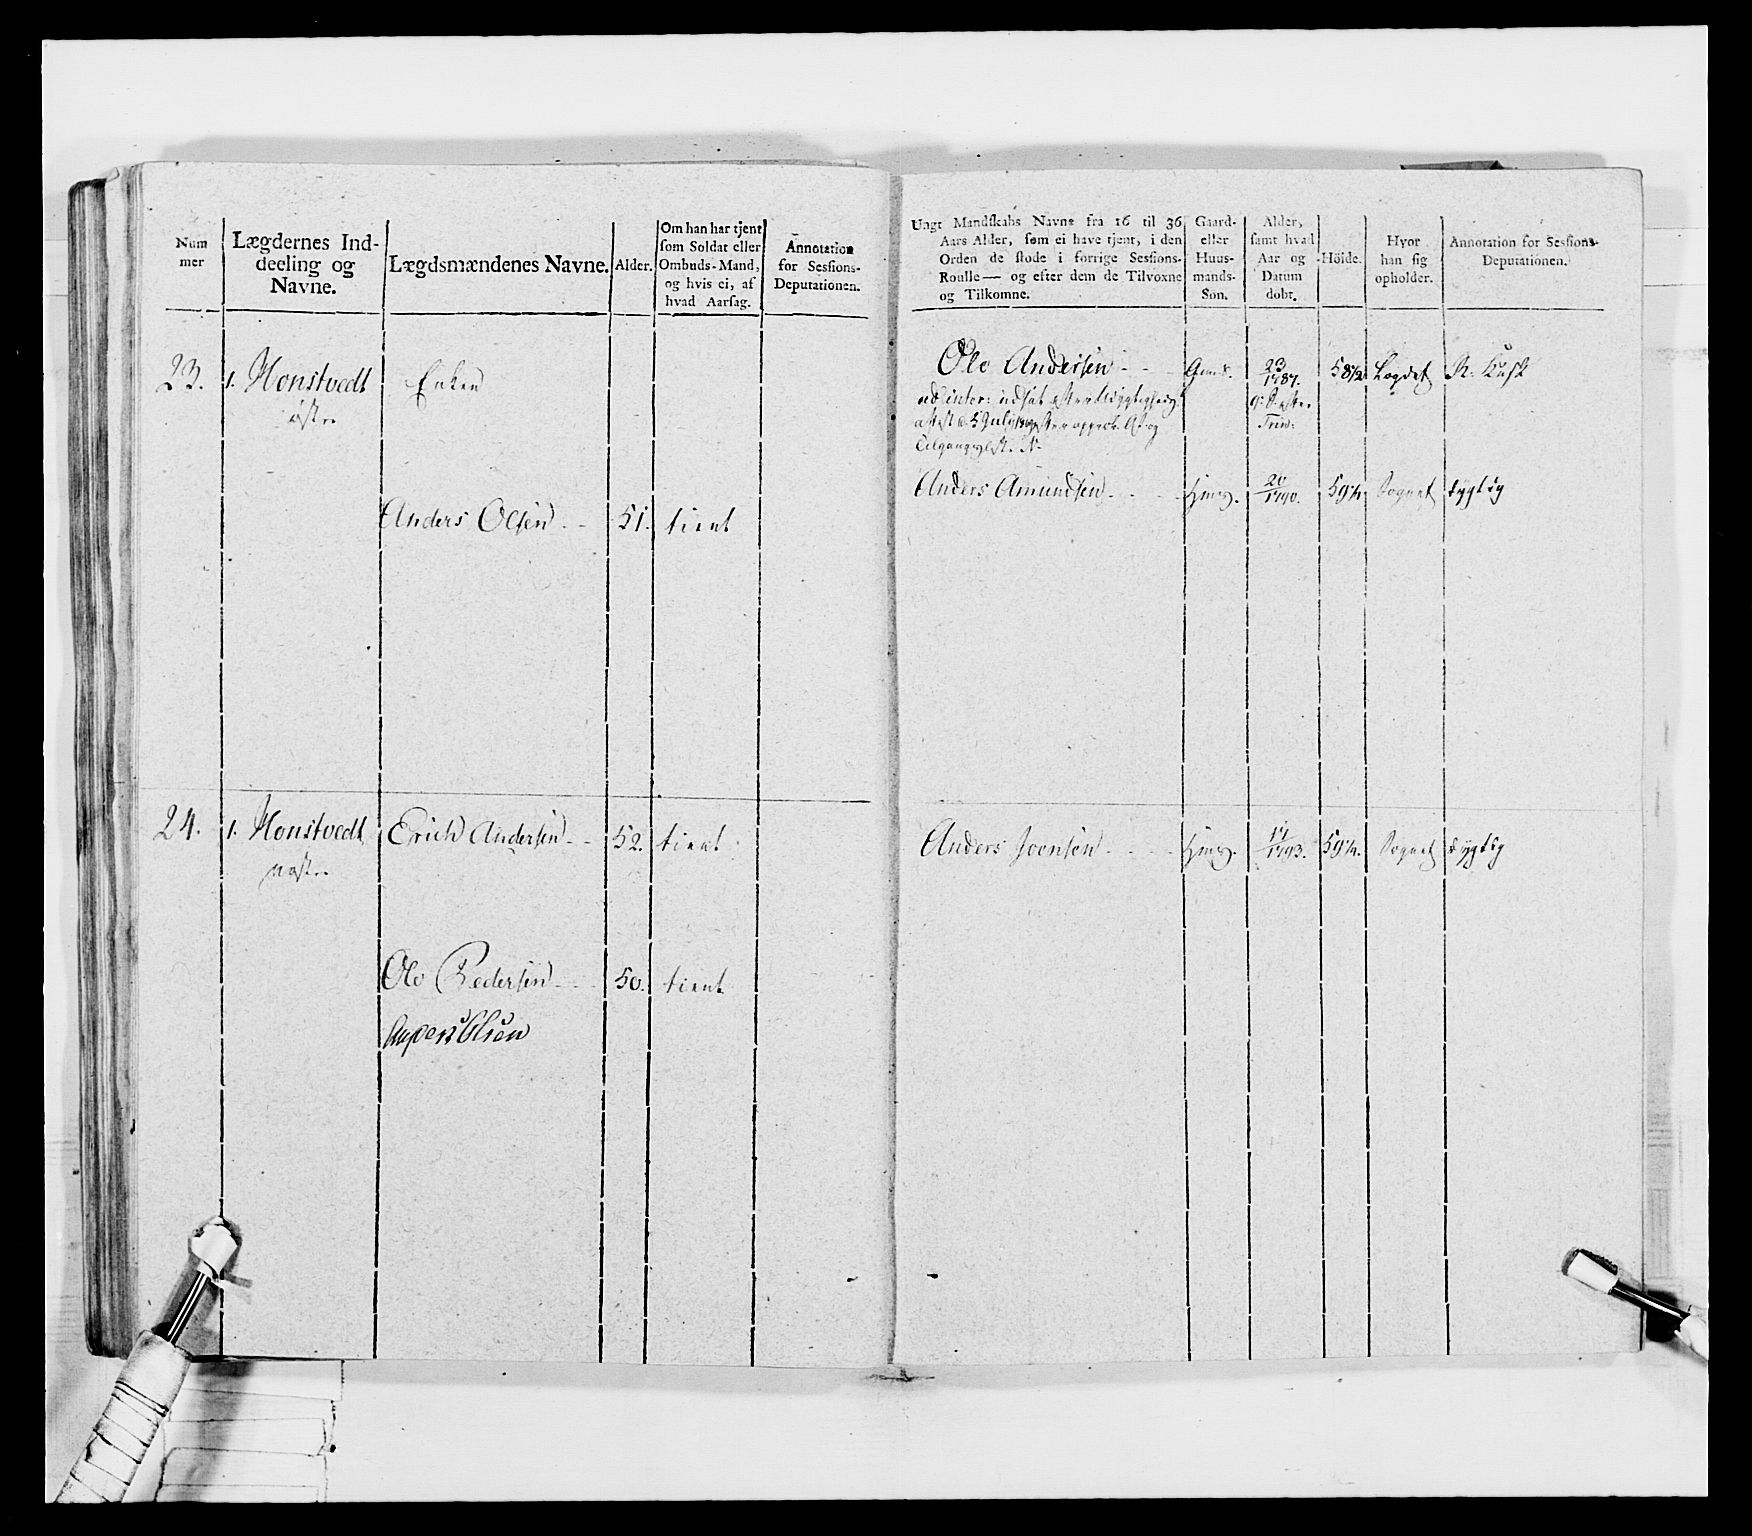 Num
mer
Lægdernes Ind-
deeling og
Navne.
Lægdsmændenes Navne.
Alder.
Om han har tjent
som Soldat eller
Ombuds-Mand,
og hvis ei, af
hvad Aarsag.
Annotation
for Sessions-
Deputationen.
23.
1. Honstvedt
østre
Enken
Anders Olsen
51.
tient
24.
1. Honstvedt
Erich Andersen
52.
tient
Ole Pedersen
50.
tient
Olsen
Ungt Mandskabs Navne fra 16 til 36
Aars Alder, som ei have tjent, i den
Orden de stode i forrige Sessions-
Roulle — og efter dem de Tilvoxne
og Tilkomne.
Gaard-
eller
Huus-
mands-
Søn.
Alder,
samt hvad
Aar og
Datum
døbt.
Höide.
Hvor
han sig
opholder.
Annotation for Sessions-
Deputationen.
Ole Andersen
23
1787.
58½
Lægdet
R: Kusk
Trin:
Anders Amundsen
20
1790.
59¼
Sognet
dygtig
Anders Joensen
17
1793.
59¼.
Sognet
dygtig